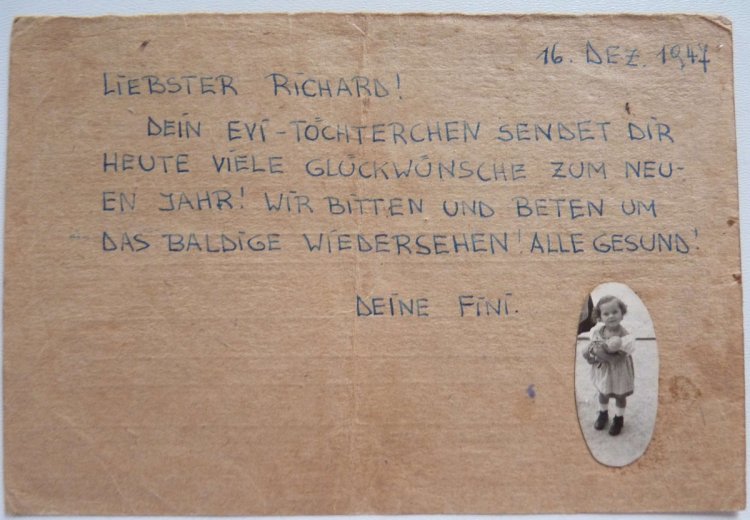 16. DEZ. 1947
LIEBSTER RICHARD!
DEIN EVI-TÖCHTERCHEN SENDET DIR
HEUTE VIELE GLÜCKWÜNSCHE ZUM NEU-
EN JAHR! WIR BITTEN UND BETEN UM
DAS BALDIGE WIEDERSEHEN! ALLE GESUND!
DEINE FINI.